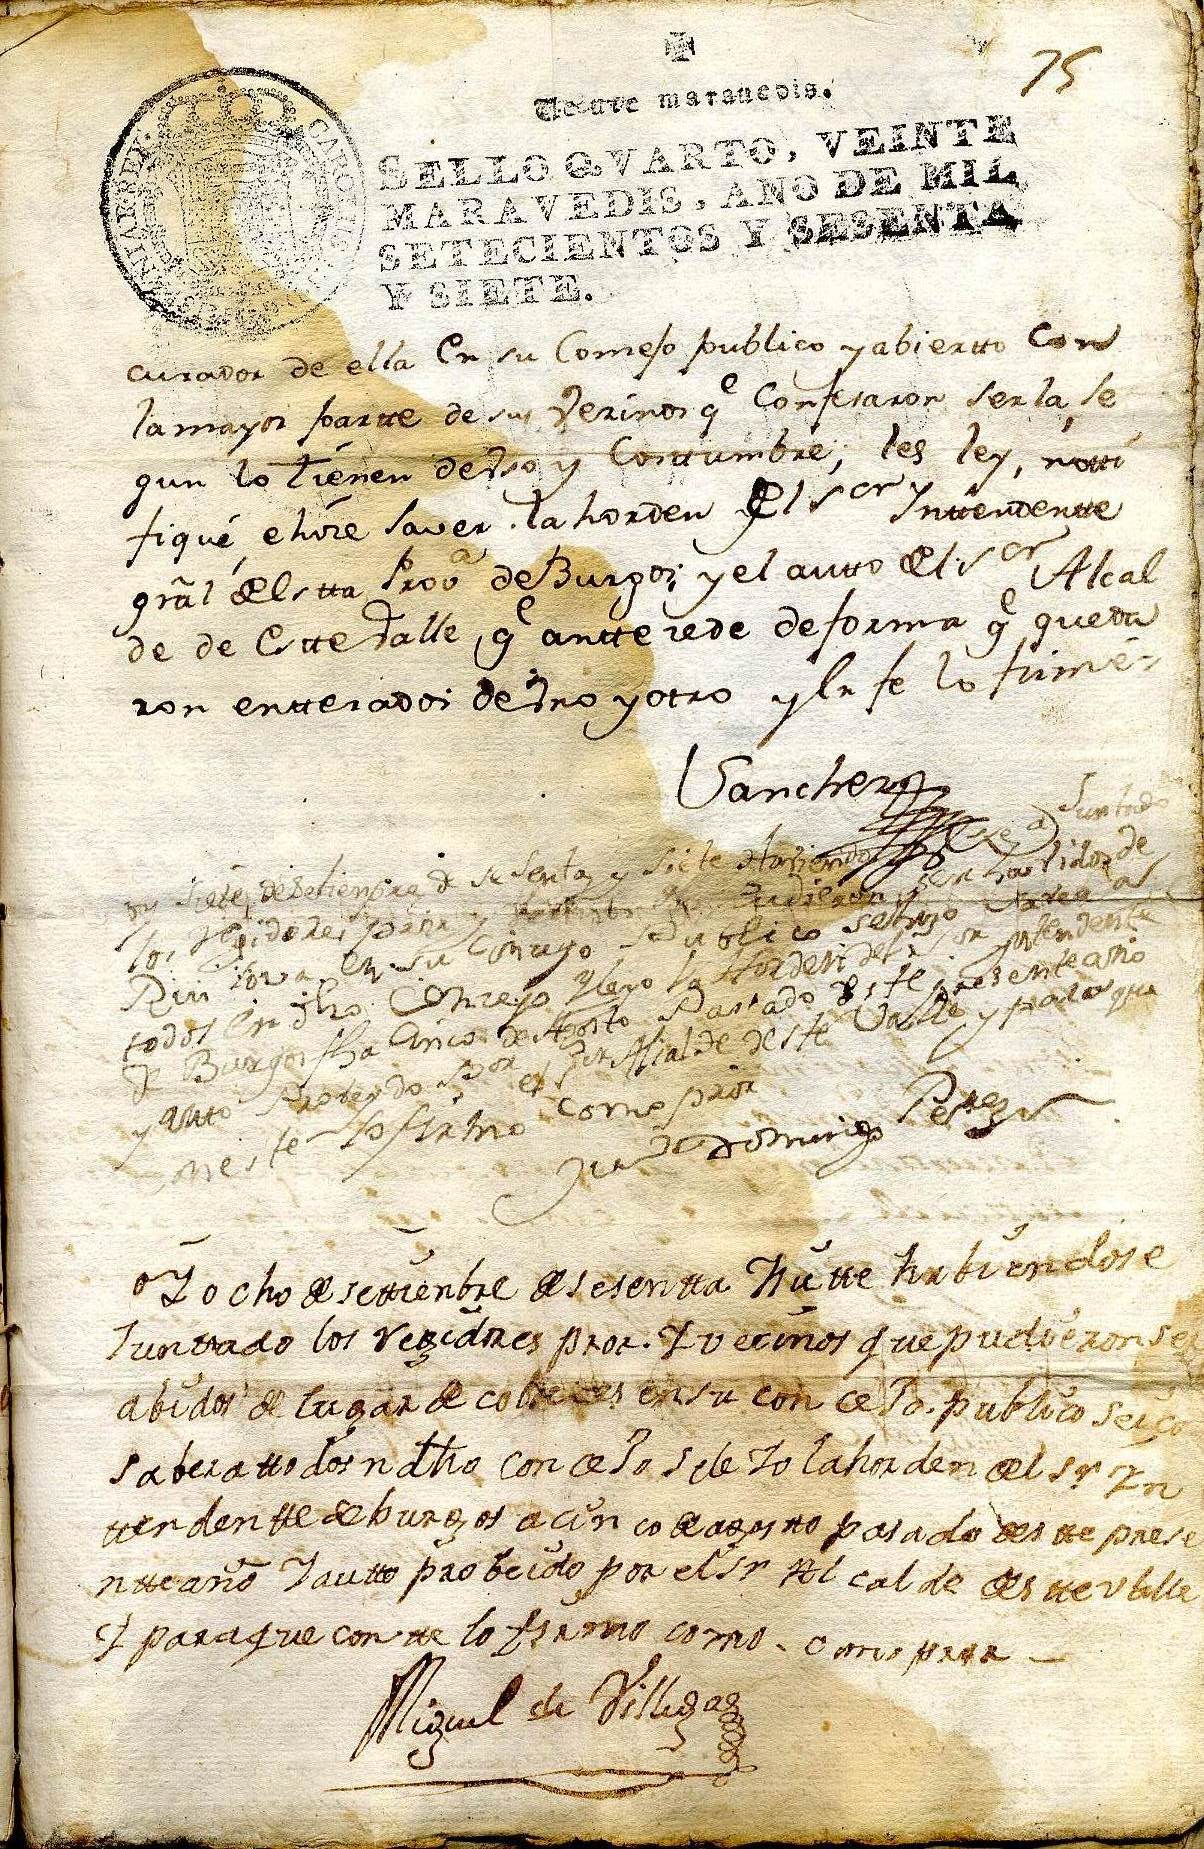 75
Veinte marauedis.
SELLO QVARTO, VEINTE
MARAVEDIS, AÑO DE MIL
SETECIENTOS Y SESENTA
Y SIETE.
CAROLUS
HISPANIAR REX
curador de ella En su Consejo publico y abiertto Con
la mayor partte de sus Vezinos q^e Confesaron ser la, se
gun lo tienen de Vso y Costtumbre, les ley, notti
fiqué, e hize saver la horden del s^or Yntendentte
grâl de estta Prov^a de Burgos, y el autto del s^or Alcal
de de Estte Valle, q^e anttezede de forma q^e queda
ron entterados de Vno y otro y En fe lo firmé =
Sanchez
oy siete de Setiembre de sesenta y siete Habiendose Juntado
los Regidores pror y que pudieron ser habidos de
en su Conzejo Publico se hizo saver a
todos En dho Conzejo y leyo la Horden del sr yntendente
de Burgos fha Cinco de Agosto Pasado de este presente año
y auto Probeydo Por el Sr Alcalde deste Valle y para que
conste lo firmo como pror
Juan Domingo Perez
oy ocho de settienbre de sesentta y siette habiendose
Junttado los regidores pror. y vecinos que pudieron ser
abidos de lugar de cobreces en su conceJo. publico se iço
saber a ttodos n dho conceJo se leyo la horden del sr Yn
ttendentte de burgos a cinco de agostto pasado de estte prese
ntte año y autto probeido por el Sr Alcalde de estte valle
y para que constte lo firmo como. como pror
Miguel de Villegas